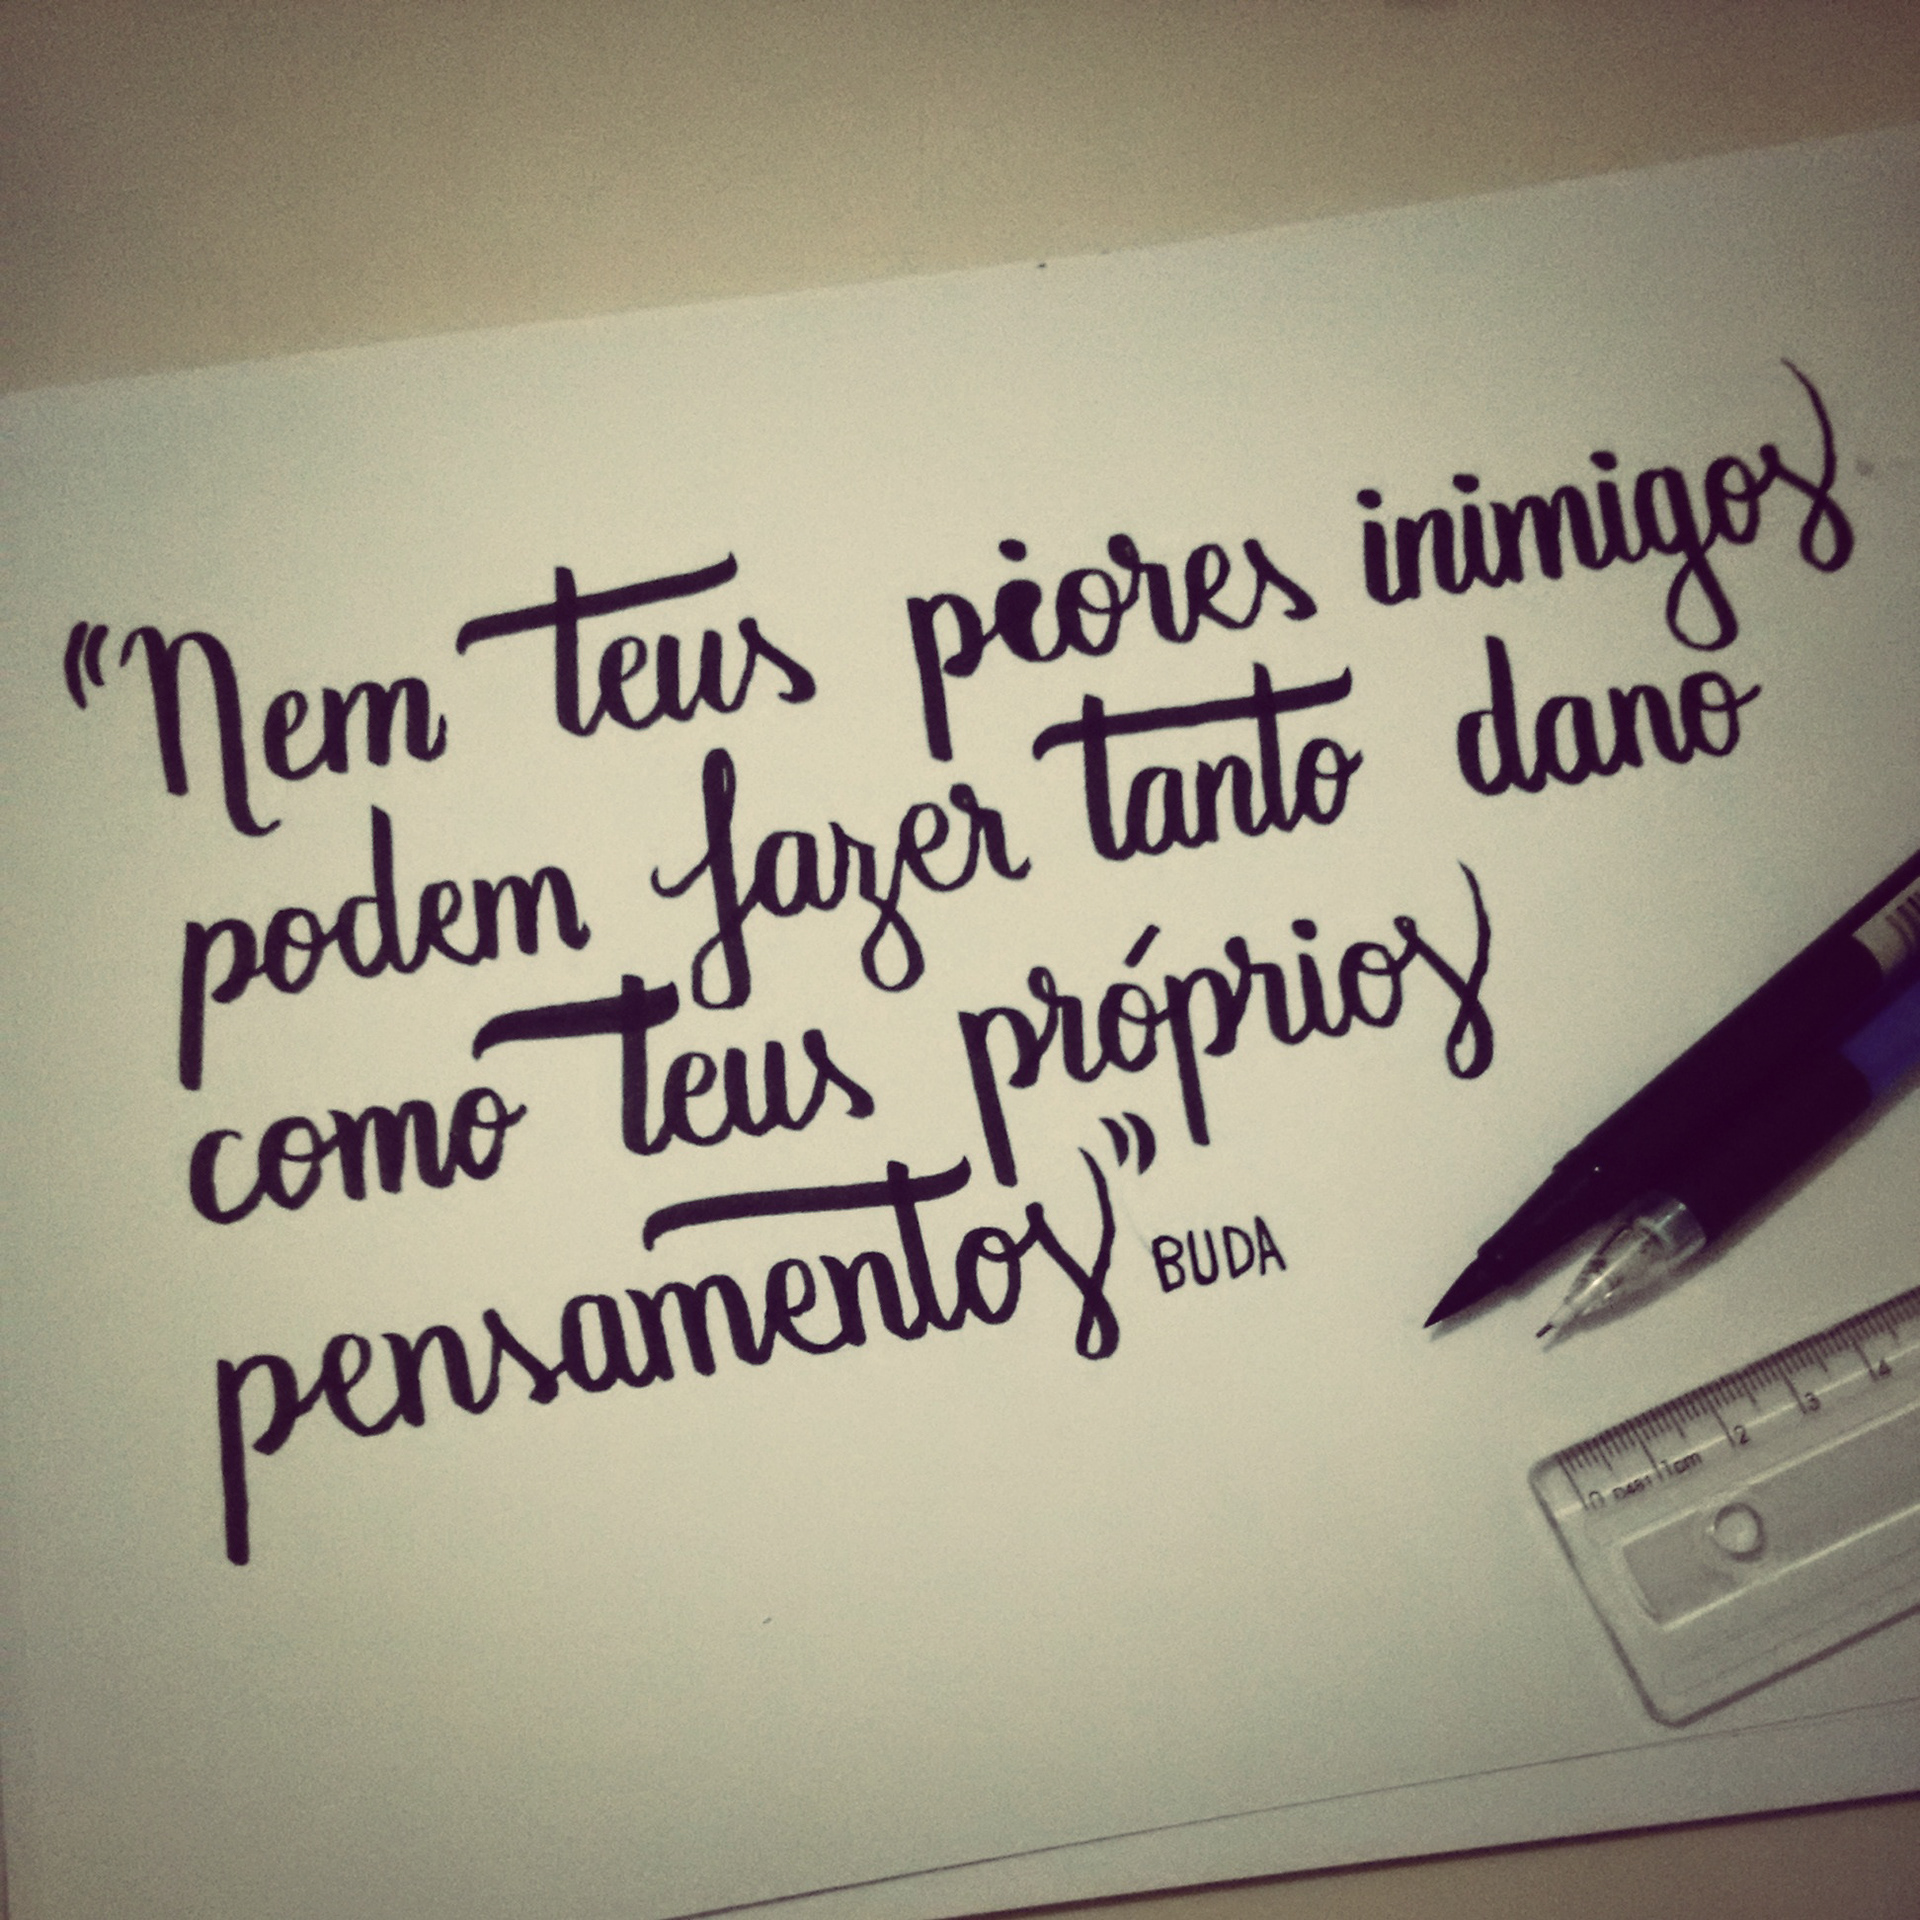 “Nem teus piores inimigos
podem fazer tanto dano
como teus próprios
pensamentos”
BUDA
0 1cm 2 3 4